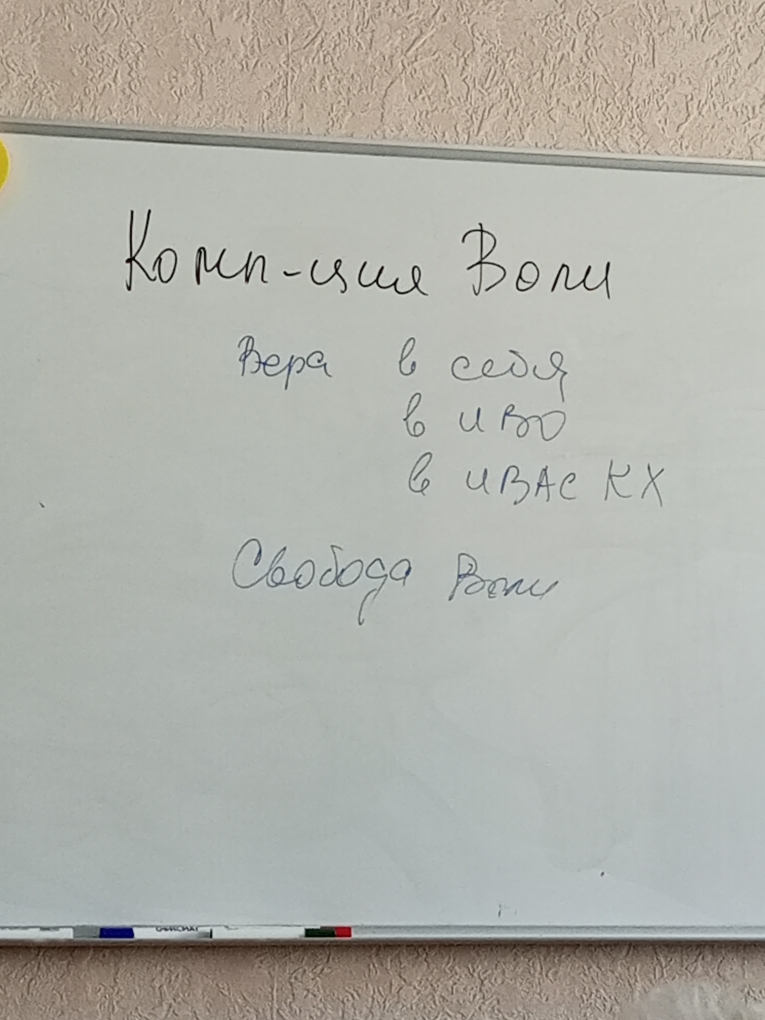 Комп-ция Воли
Вера в себя
в ИВО
в ИВАС КХ
Свобода Воли